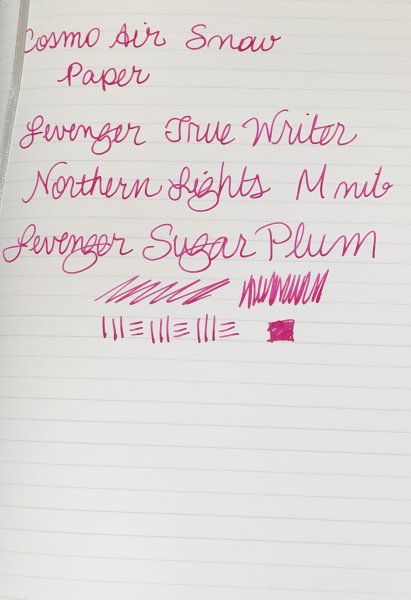 Cosmo Air Snow
Paper
Levenger True Writer
Northern Lights M nib
Levenger Sugar Plum